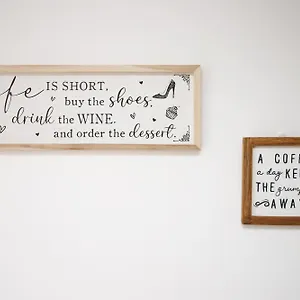 IS SHORT,
buy the shoes,
drink the WINE.
and order the dessert.
A
a day
THE
AWAY